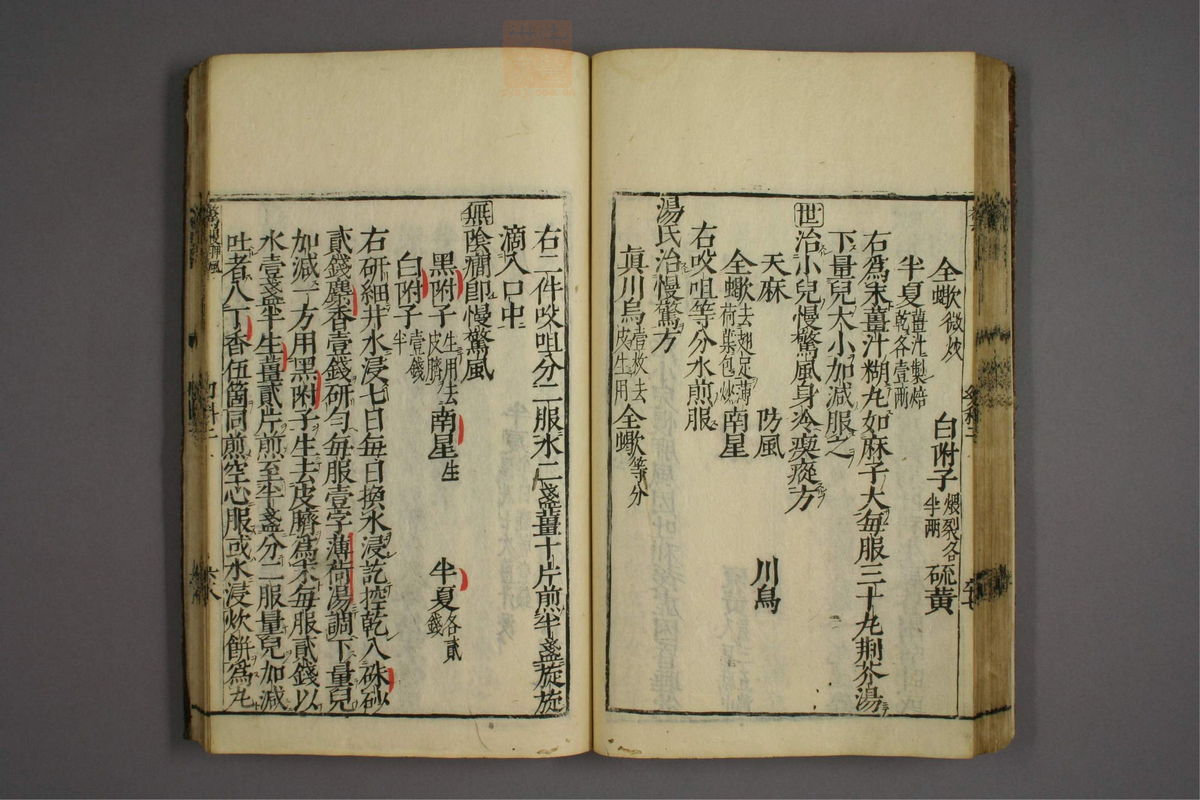 全蠍微炒
半夏薑汁製焙乾各壹兩 白附子煨裂各半兩 硫黃
右爲末薑汁糊丸如麻子大每服三十丸荆芥湯
下量兒大小加減服之
世治小兒慢驚風身冷瘈瘲方
天麻 防風 川烏
全蠍去翅足薄荷葉包炒 南星
右㕮咀等分水煎服
湯氏治慢驚方
眞川烏壹枚去皮生用 全蠍等分
右二件㕮咀分二服水二盞薑十片煎半盞旋旋
滴入口中
無陰癎卽慢驚風
黑附子生用去皮臍 南星生 半夏各貳錢
白附子壹錢半
右硏細井水浸七日每日換水浸訖控乾入硃砂
貳錢麝香壹錢硏勻每服壹字薄荷湯調下量兒
加減一方用黑附子生去皮臍爲末每服貳錢以
水壹盞半生薑貳片煎至半盞分二服量兒加減
吐者入丁香伍箇同煎空心服或水浸炊餠爲丸
幼科二
六八